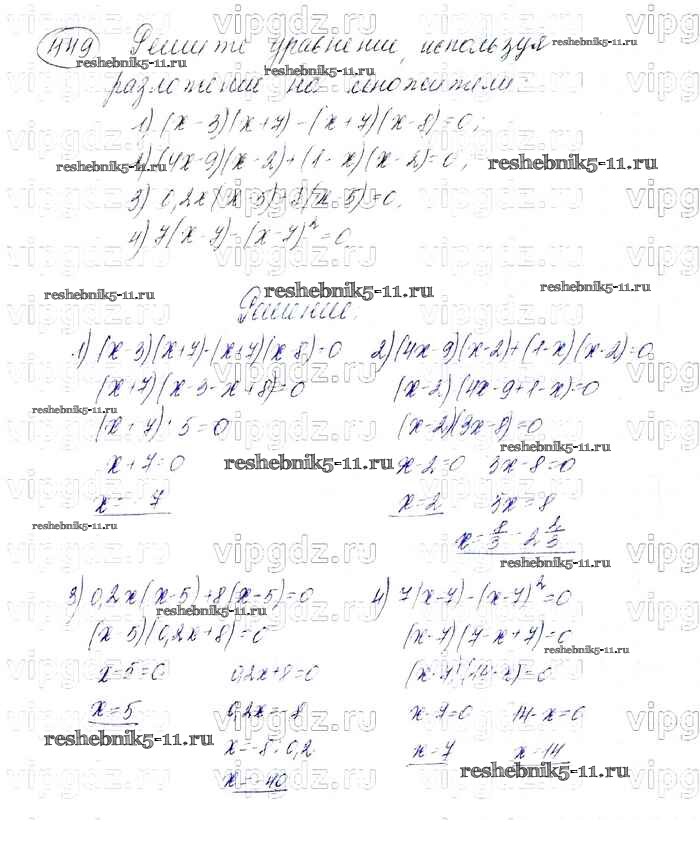 449 Решите уравнение, используя
разложение на множители
1) (x-3)(x+7)-(x+7)(x-8)=0;
2) (4x-9)(x-2)+(1-x)(x-2)=0;
3) 0,2x(x-5)+8(x-5)=0.
4) 7(x-7)-(x-7)²=0
Решение.
1) (x-3)(x+7)-(x+7)(x-8)=0
(x+7)(x-3-x+8)=0
(x+7)·5=0
x+7=0
x=-7
2) (4x-9)(x-2)+(1-x)(x-2)=0
(x-2)(4x-9+1-x)=0
(x-2)(3x-8)=0
x-2=0 3x-8=0
x=2 3x=8
x=8/3=2 2/3
3) 0,2x(x-5)+8(x-5)=0
(x-5)(0,2x+8)=0
x-5=0 0,2x+8=0
x=5 0,2x=-8
x=-8:0,2
x=-40
4) 7(x-7)-(x-7)²=0
(x-7)(7-x+7)=0
(x-7)(14-x)=0
x-7=0 14-x=0
x=7 x=14
reshebnik5-11.ru
vipgdz.ru